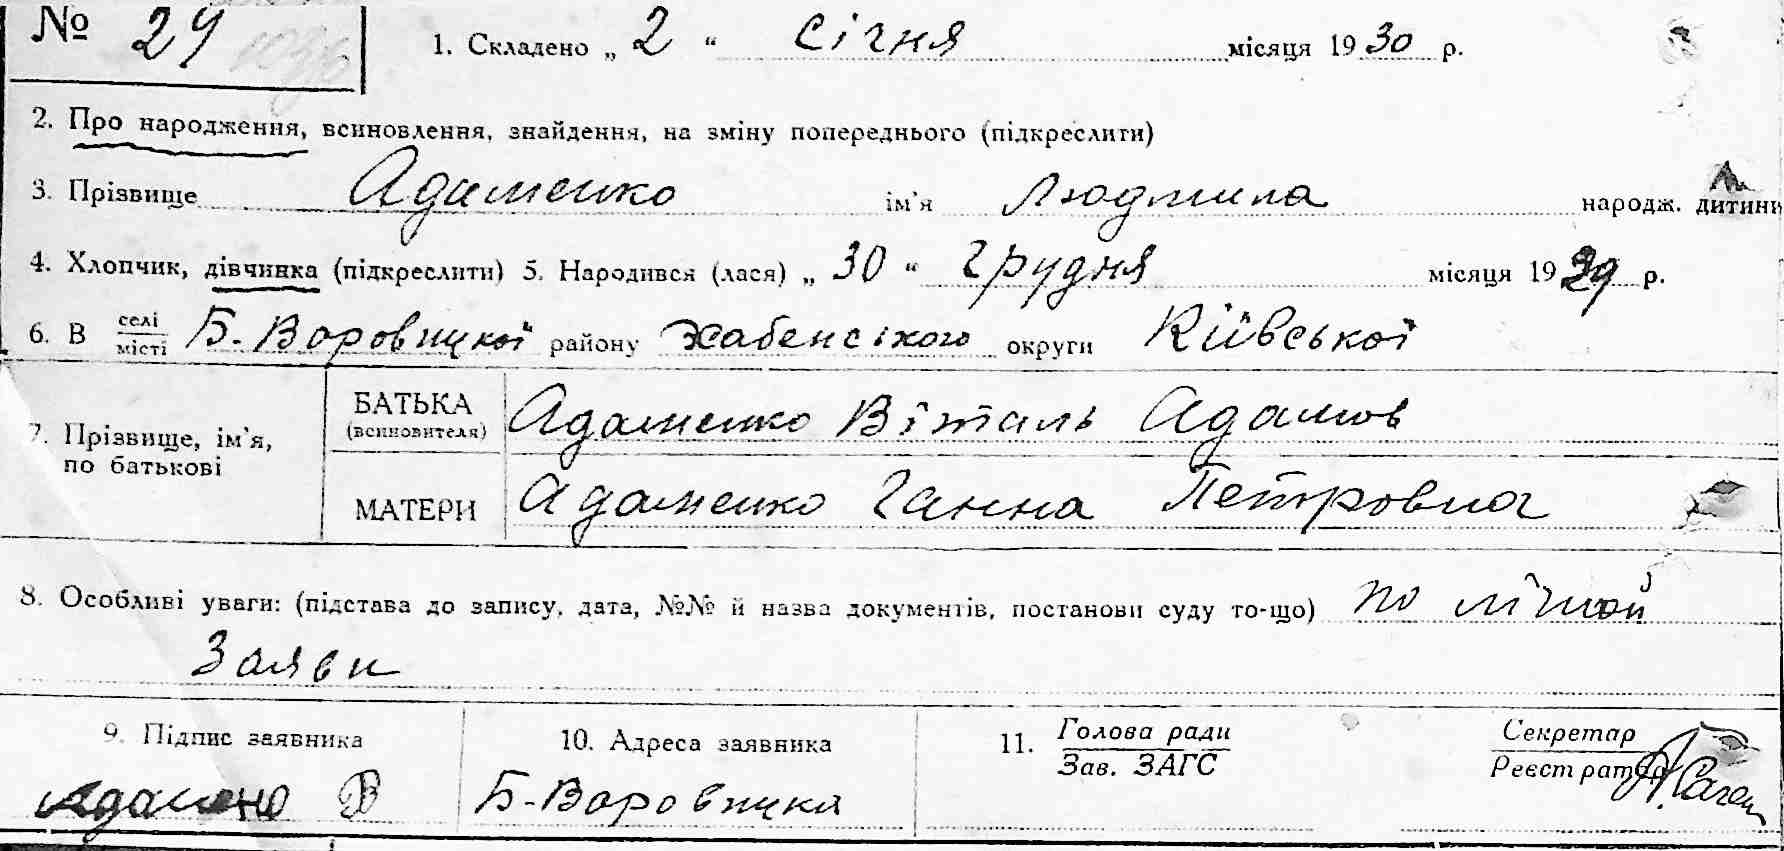 № 24
1. Складено „ 2 “ Січня місяця 1930 р.
2. Про народження, всиновлення, знайдення, на зміну попереднього (підкреслити)
3. Прізвище Адаменко ім'я Людмила народж. дитини
4. Хлопчик, дівчинка (підкреслити) 5. Народився (лася) „ 30 “ грудня місяця 1929 р.
6. В селі місті Б-Воровицкої району Хабенського округи Київської
7. Прізвище, ім'я, по батькові
БАТЬКА (всиновителя) Адаменко Віталь Адамов
МАТЕРИ Адаменко Ганна Петровна
8. Особливі уваги: (підстава до запису, дата, №№ й назва документів, постанови суду то-що) по лічной
Заяви
9. Підпис заявника 10. Адреса заявника 11. Голова ради Зав. ЗАГС Секретар Реєстратор
В Б-Воровицкя